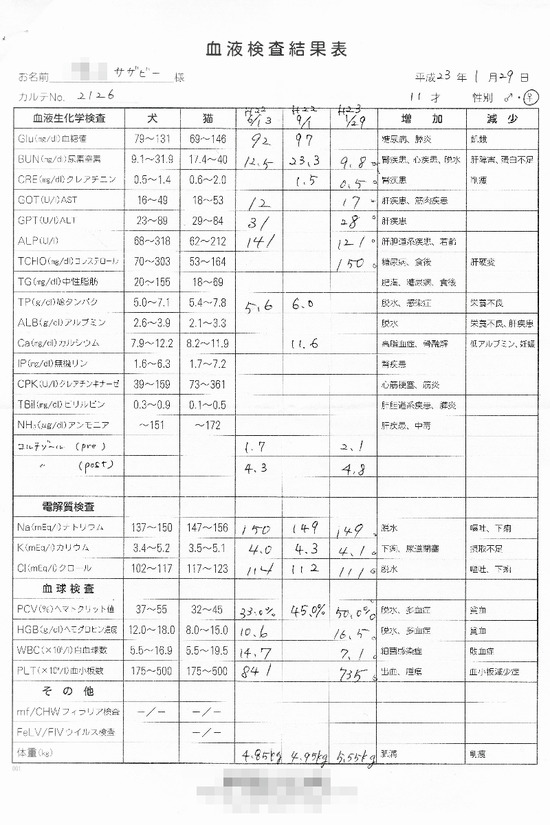 血液検査結果表
お名前 サザビー 様 平成23年 1月29日
カルテNo. 2126 11才 性別 ♂・♀
血液生化学検査 犬 猫 H22 8/13 H22 9/1 H23 1/29 増加 減少
Glu(mg/dl)血糖値 79〜131 69〜146 92 97 糖尿病、膵炎 飢餓
BUN(mg/dl)尿素窒素 9.1〜31.9 17.4〜40 12.5 23.3 9.8 腎疾患、心疾患、脱水 肝障害、蛋白不足
CRE(mg/dl)クレアチニン 0.5〜1.4 0.6〜2.0 1.5 0.5 腎疾患 削痩
GOT(U/l)AST 16〜49 18〜53 12 17 肝疾患、筋肉疾患
GPT(U/l)ALT 23〜89 29〜84 31 28 肝疾患
ALP(U/l) 68〜318 62〜212 141 121 肝胆道系疾患、若齢
TCHO(mg/dl)コレステロール 70〜303 53〜164 150 糖尿病、食後 肝硬変
TG(mg/dl)中性脂肪 20〜155 18〜69 肥満、糖尿病、食後
TP(g/dl)総タンパク 5.0〜7.1 5.4〜7.8 5.6 6.0 脱水、感染症 栄養不良
ALB(g/dl)アルブミン 2.6〜3.9 2.1〜3.3 脱水 栄養不良、肝疾患
Ca(mg/dl)カルシウム 7.9〜12.2 8.2〜11.9 11.6 高脂血症、骨融解 低アルブミン、妊娠
IP(mg/dl)無機リン 1.6〜6.3 1.7〜7.2 腎疾患
CPK(U/l)クレアチンキナーゼ 39〜159 73〜361 心筋梗塞、筋炎
TBil(mg/dl)ビリルビン 0.3〜0.9 0.1〜0.5 肝胆道系疾患、膵炎
NH₃(μg/dl)アンモニア 〜151 〜172 肝疾患、中毒
コルチゾール (pre) 1.7 2.1
〃 (post) 4.3 4.8
電解質検査
Na(mEq/l)ナトリウム 137〜150 147〜156 150 149 149 脱水 嘔吐、下痢
K(mEq/l)カリウム 3.4〜5.2 3.5〜5.1 4.0 4.3 4.1 下痢、尿道閉塞 摂取不足
Cl(mEq/l)クロール 102〜117 117〜123 114 112 111 脱水 嘔吐、下痢
血球検査
PCV(%)ヘマトクリット値 37〜55 32〜45 33.0% 45.0% 50.0% 脱水、多血症 貧血
HGB(g/dl)ヘモグロビン濃度 12.0〜18.0 8.0〜15.0 10.6 16.5 脱水、多血症 貧血
WBC(×10³/l)白血球数 5.5〜16.9 5.5〜19.5 14.7 7.1 細菌感染症 敗血症
PLT(×10³/l)血小板数 175〜500 175〜500 841 735 出血、腫瘍 血小板減少症
その他
mf/CHWフィラリア検査 −/− −/−
FeLV/FIVウイルス検査 −/−
体重(kg) 4.85kg 4.95kg 5.55kg 肥満 削痩